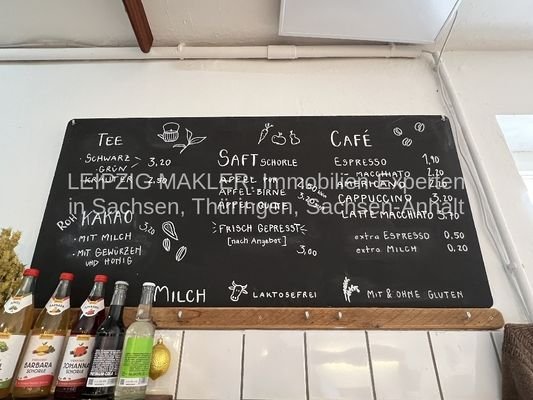 TEE
· SCHWARZ
· GRÜN 3,20
KRÄUTER 2,80
ROH KAKAO 3,20
· MIT MILCH
· MIT GEWÜRZEN
UND HONIG
SAFTSCHORLE
APFEL PUR
APFEL-BIRNE
APFEL-QUITTE
FRISCH GEPRESST
[nach Angebot]
3,00
CAFÉ
ESPRESSO 1,90
MACCHIATO 2,20
AMERICANO
CAPPUCCINO 3,20
LATTE MACCHIATO 3,70
extra ESPRESSO 0,50
extra MILCH 0,20
MILCH
LAKTOSEFREI
MIT & OHNE GLUTEN
LEIPZIG-MAKLER Immobilienexperten
in Sachsen, Thüringen, Sachsen-Anhalt
BARBARA
SCHORLE
JOHANNA
SCHORLE